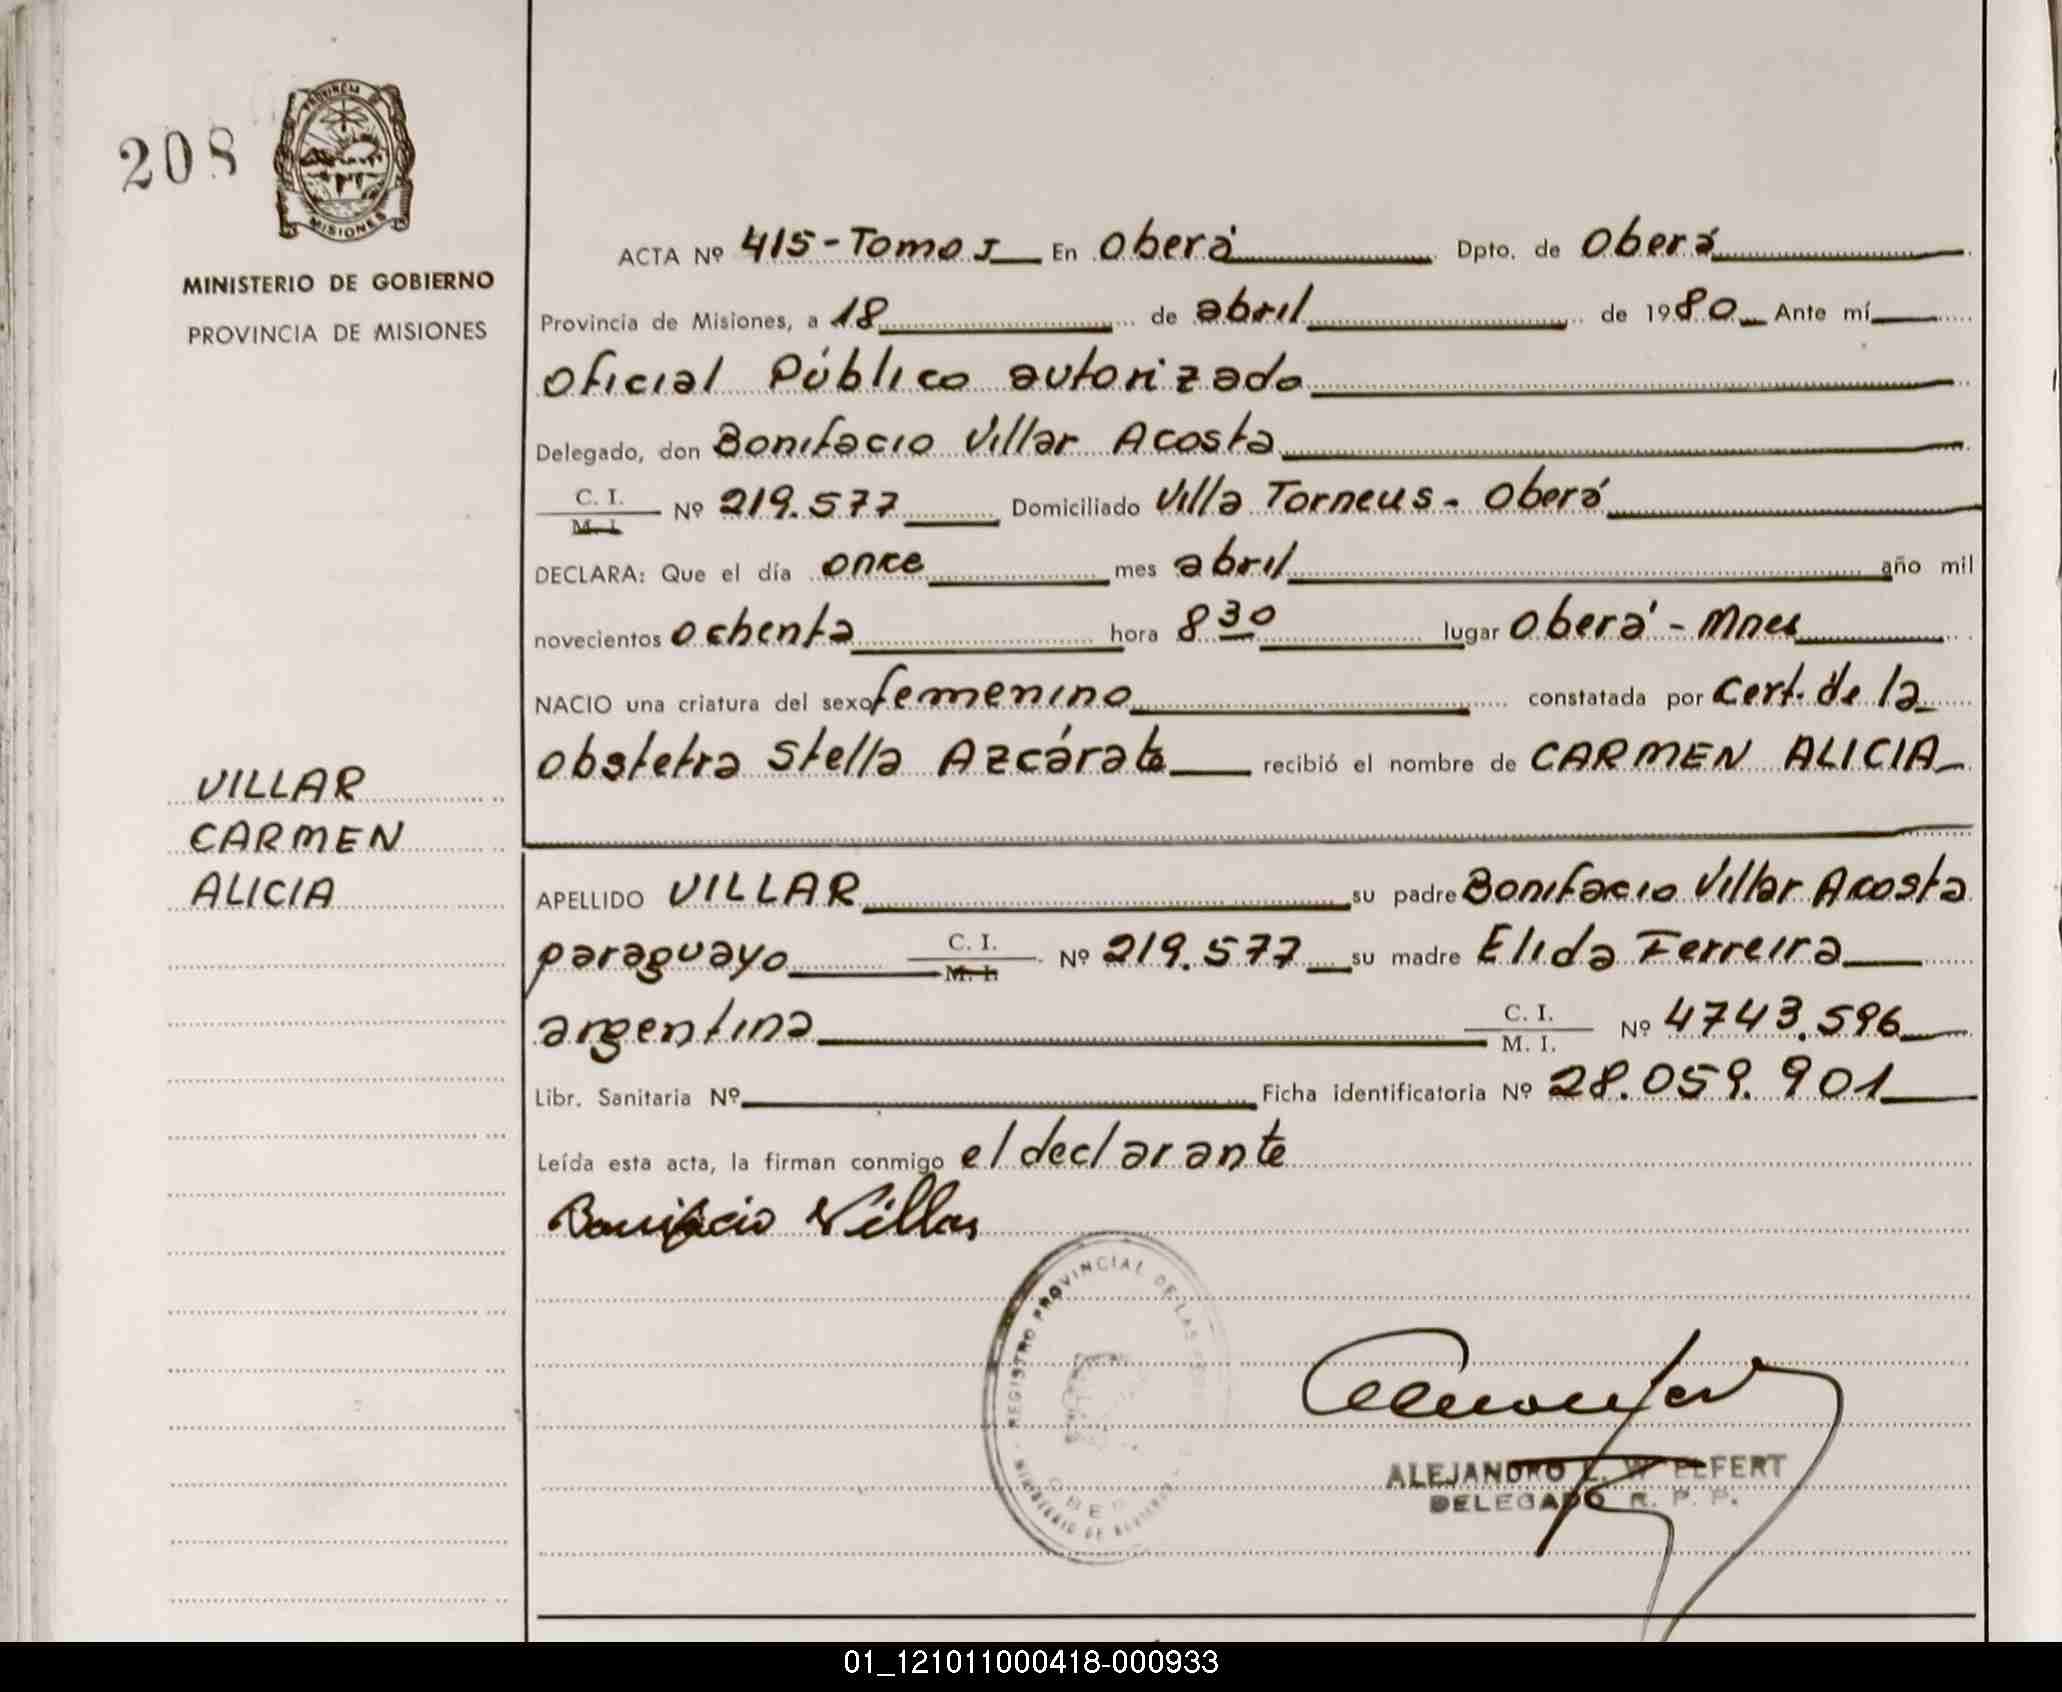 208
PROVINCIA DE
MISIONES
MINISTERIO DE GOBIERNO
PROVINCIA DE MISIONES
VILLAR
CARMEN
ALICIA
ACTA Nº 415-Tomo I En Oberá Dpto. de Oberá
Provincia de Misiones, a 18 de abril de 1980 Ante mí
Oficial Público autorizado
Delegado, don Bonifacio Villar Acosta
C. I.
M. I. Nº 219.577 Domiciliado Villa Torneus - Oberá
DECLARA: Que el día once mes abril año mil
novecientos ochenta hora 8 30 lugar Oberá - Mnes
NACIO una criatura del sexo femenino constatada por Cert. de la
Obstetra Stella Azcárate recibió el nombre de CARMEN ALICIA
APELLIDO VILLAR su padre Bonifacio Villar Acosta
paraguayo C. I. M. I. Nº 219.577 su madre Elida Ferreira
argentina C. I. M. I. Nº 4743.596
Libr. Sanitaria Nº Ficha identificatoria Nº 28.059.901
Leída esta acta, la firman conmigo el declarante
Bonifacio Villar
REGISTRO PROVINCIAL DE LAS
MINISTERIO DE GOBIERNO
ALEJANDRO L. WELFERT
DELEGADO R. P. P.
01_121011000418-000933